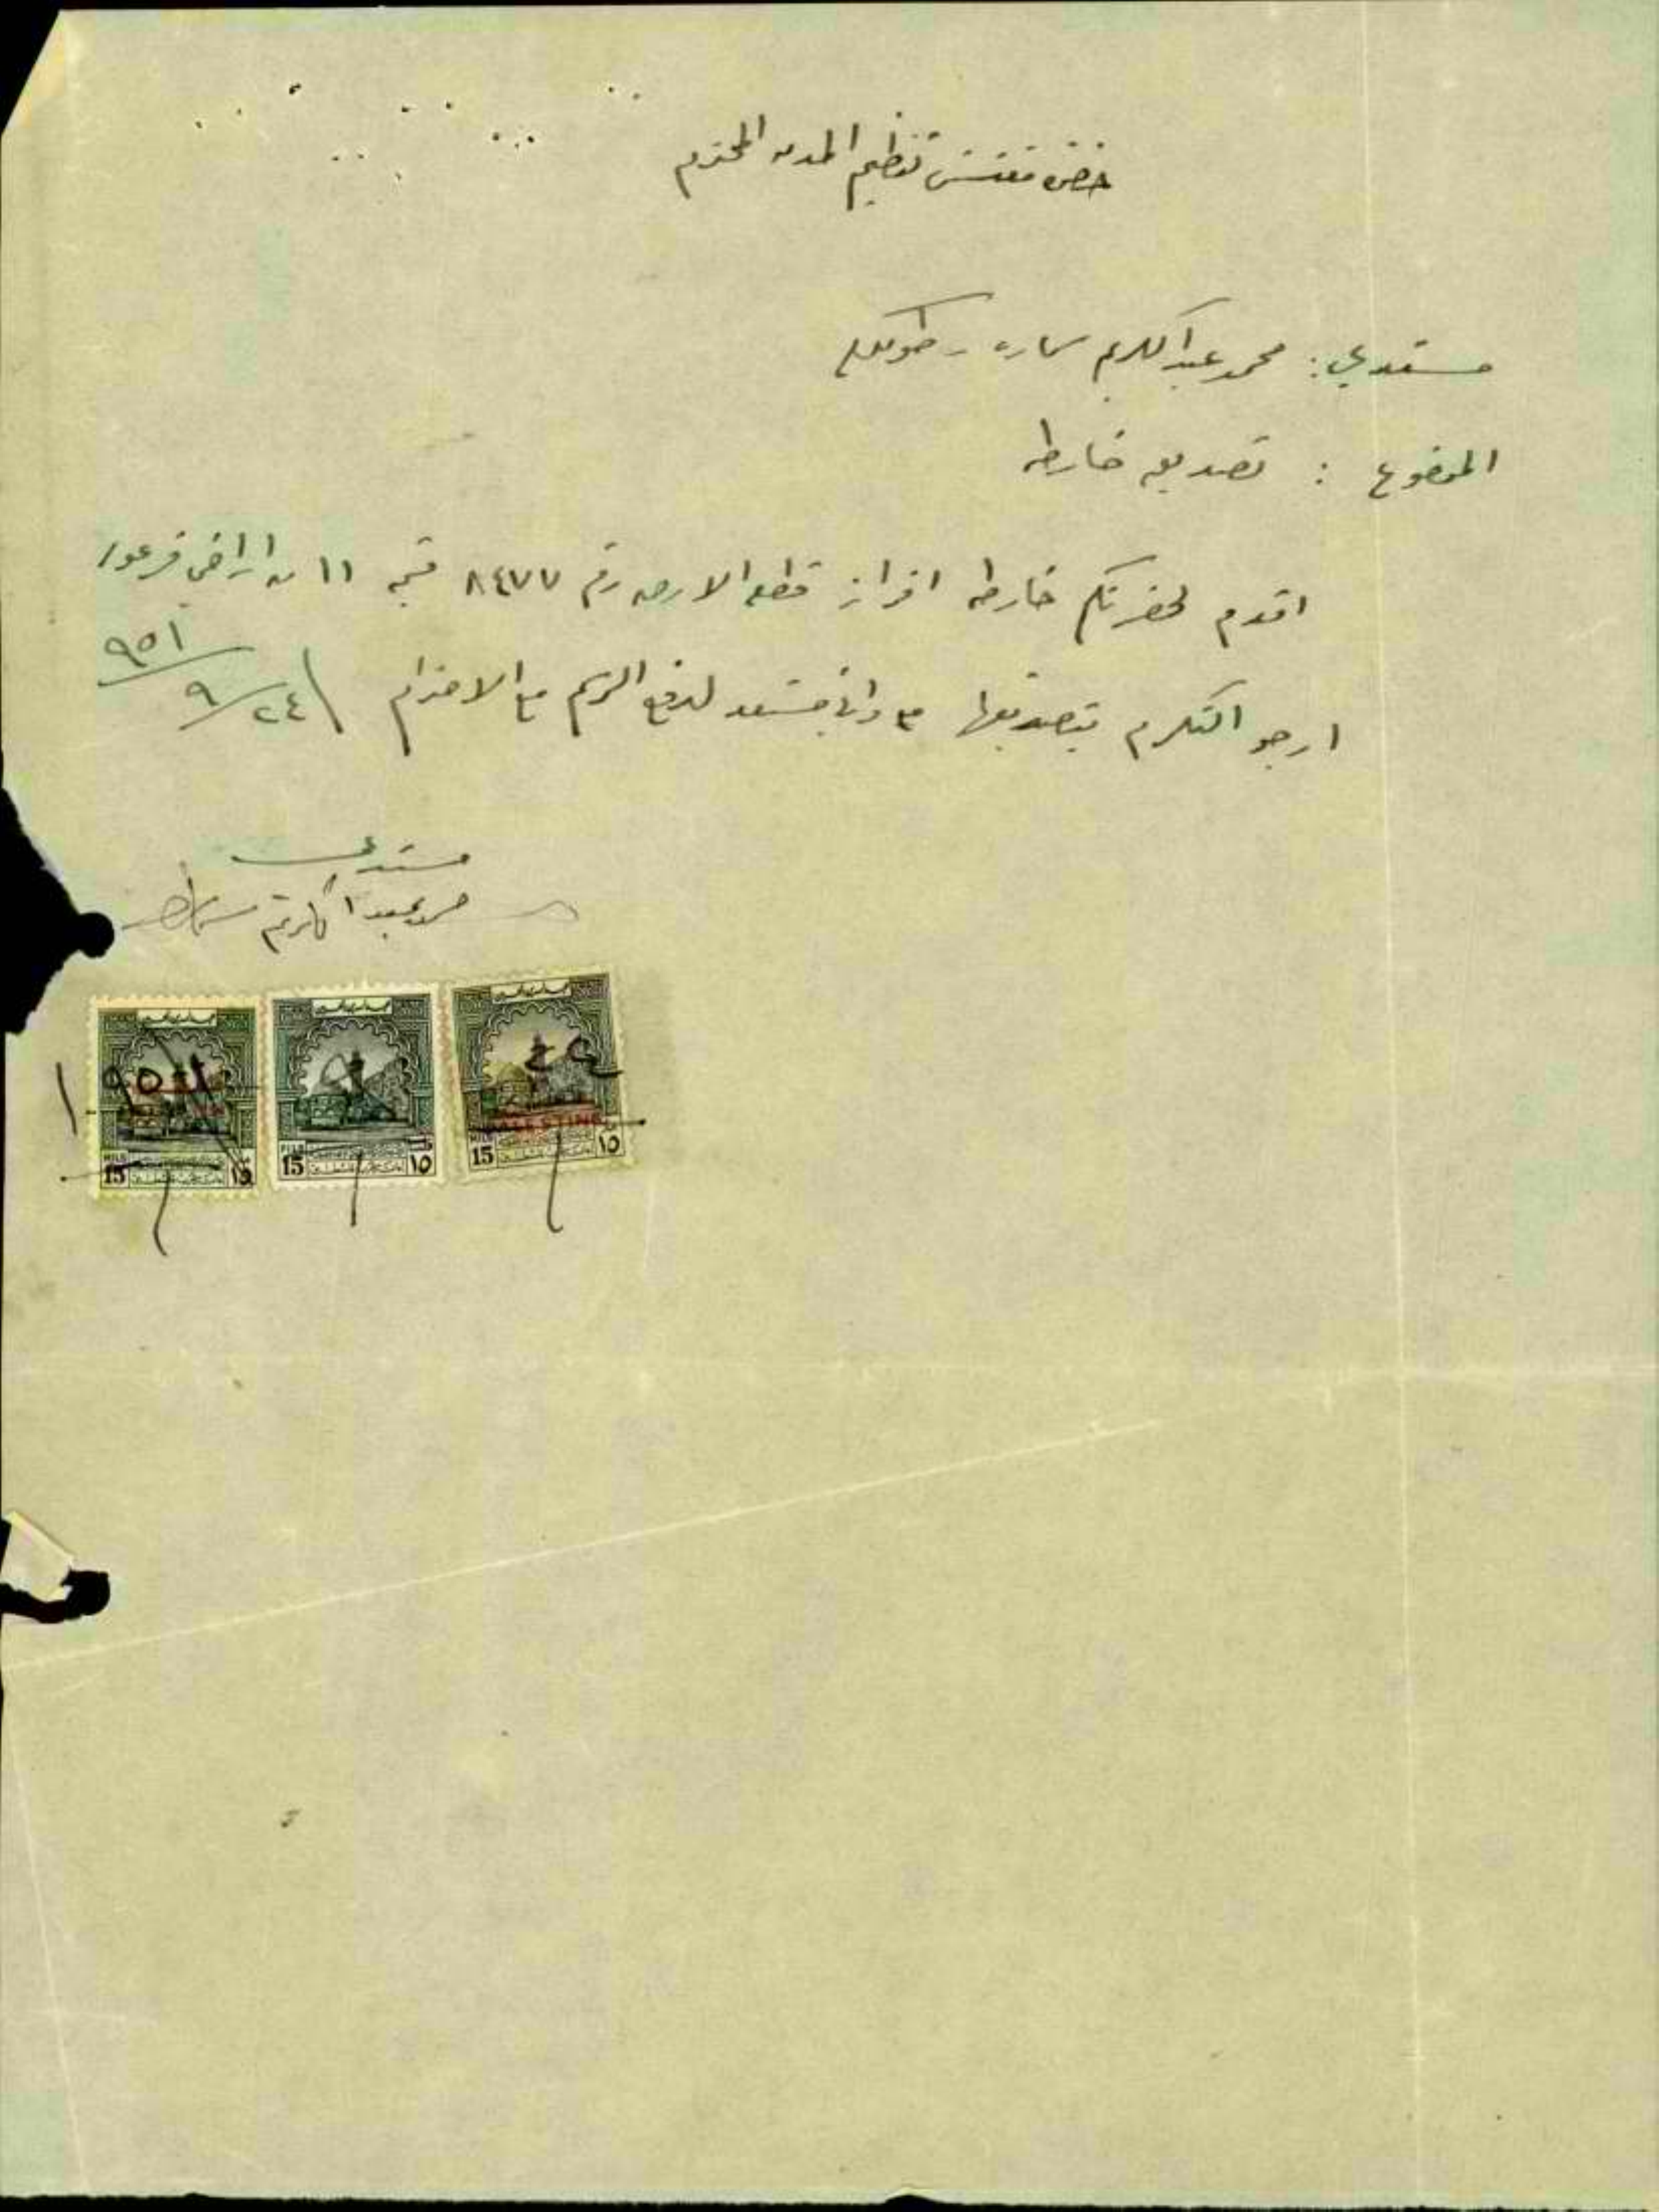 حضرة مفتش تنظيم المدن المحترم
مستدعي : محمد عبد الكريم سماره - طولكرم
الموضوع : تصديق خارطه
اقدم لحضرتكم خارطه افراز قطعة الارض رقم ٨٤٧٧ قسيمه ١١ من اراضي فرعون
ارجو التكرم بتصديقها واني مستعد لدفع الرسم مع الاحترام ٢٤/٩/٩٥١
مستدعي
محمد عبد الكريم سماره
٢٤ ٩ ١٩٥١
PALESTINE
MILS 15 ١٥
MILS 15 ١٥
MILS 15 ١٥